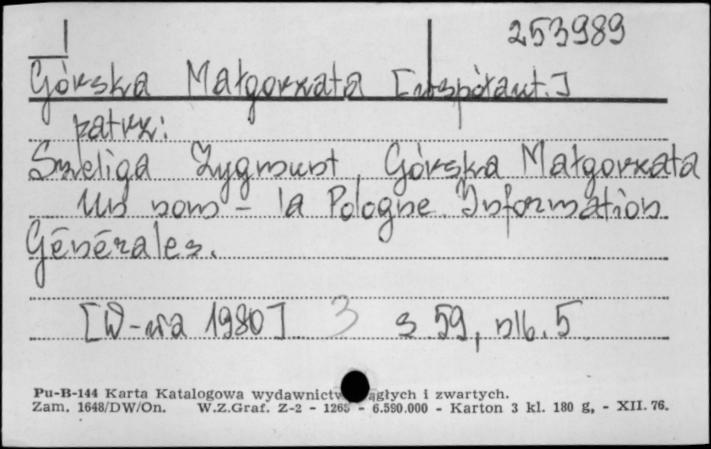 253989
Górska Małgorzata [współaut.]
patrz:
Szeliga Zygmunt, Górska Małgorzata
Un nom - la Pologne. Information
Générales.
[W-wa 1980] 3 s. 59, nlb. 5
Pu-B-144 Karta Katalogowa wydawnictw ągłych i zwartych.
Zam. 1648/DW/On. W.Z.Graf. Z-2 - 1265 - 6.590.000 - Karton 3 kl. 180 g, - XII. 76.